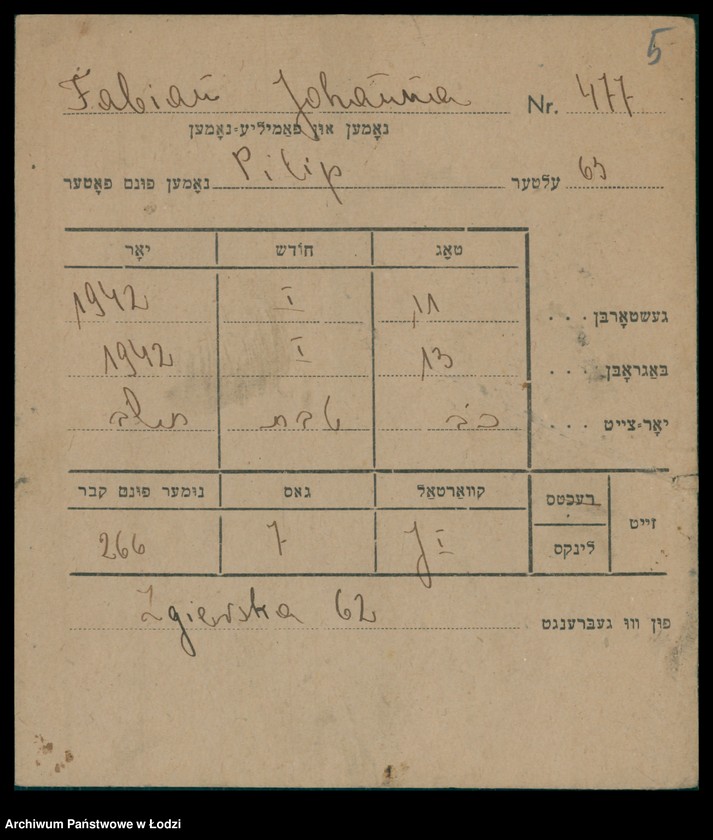 5
Fabian Johanna Nr. 477
נאָמען און פאַמיליע-נאָמען
נאָמען פונם פאָטער Pilip עלטער 63
טאָג חודש יאָר
געשטאָרבן . . . 11 I 1942
באַגראָבן . . . 13 I 1942
יאָר-צייט . . . כב טבת תשב
זייט רעכטס לינקס קוואַרטאַל גאַס נומער פונם קבר
I 7 266
פון ווו געברענגט Zgierska 62
Archiwum Państwowe w Łodzi